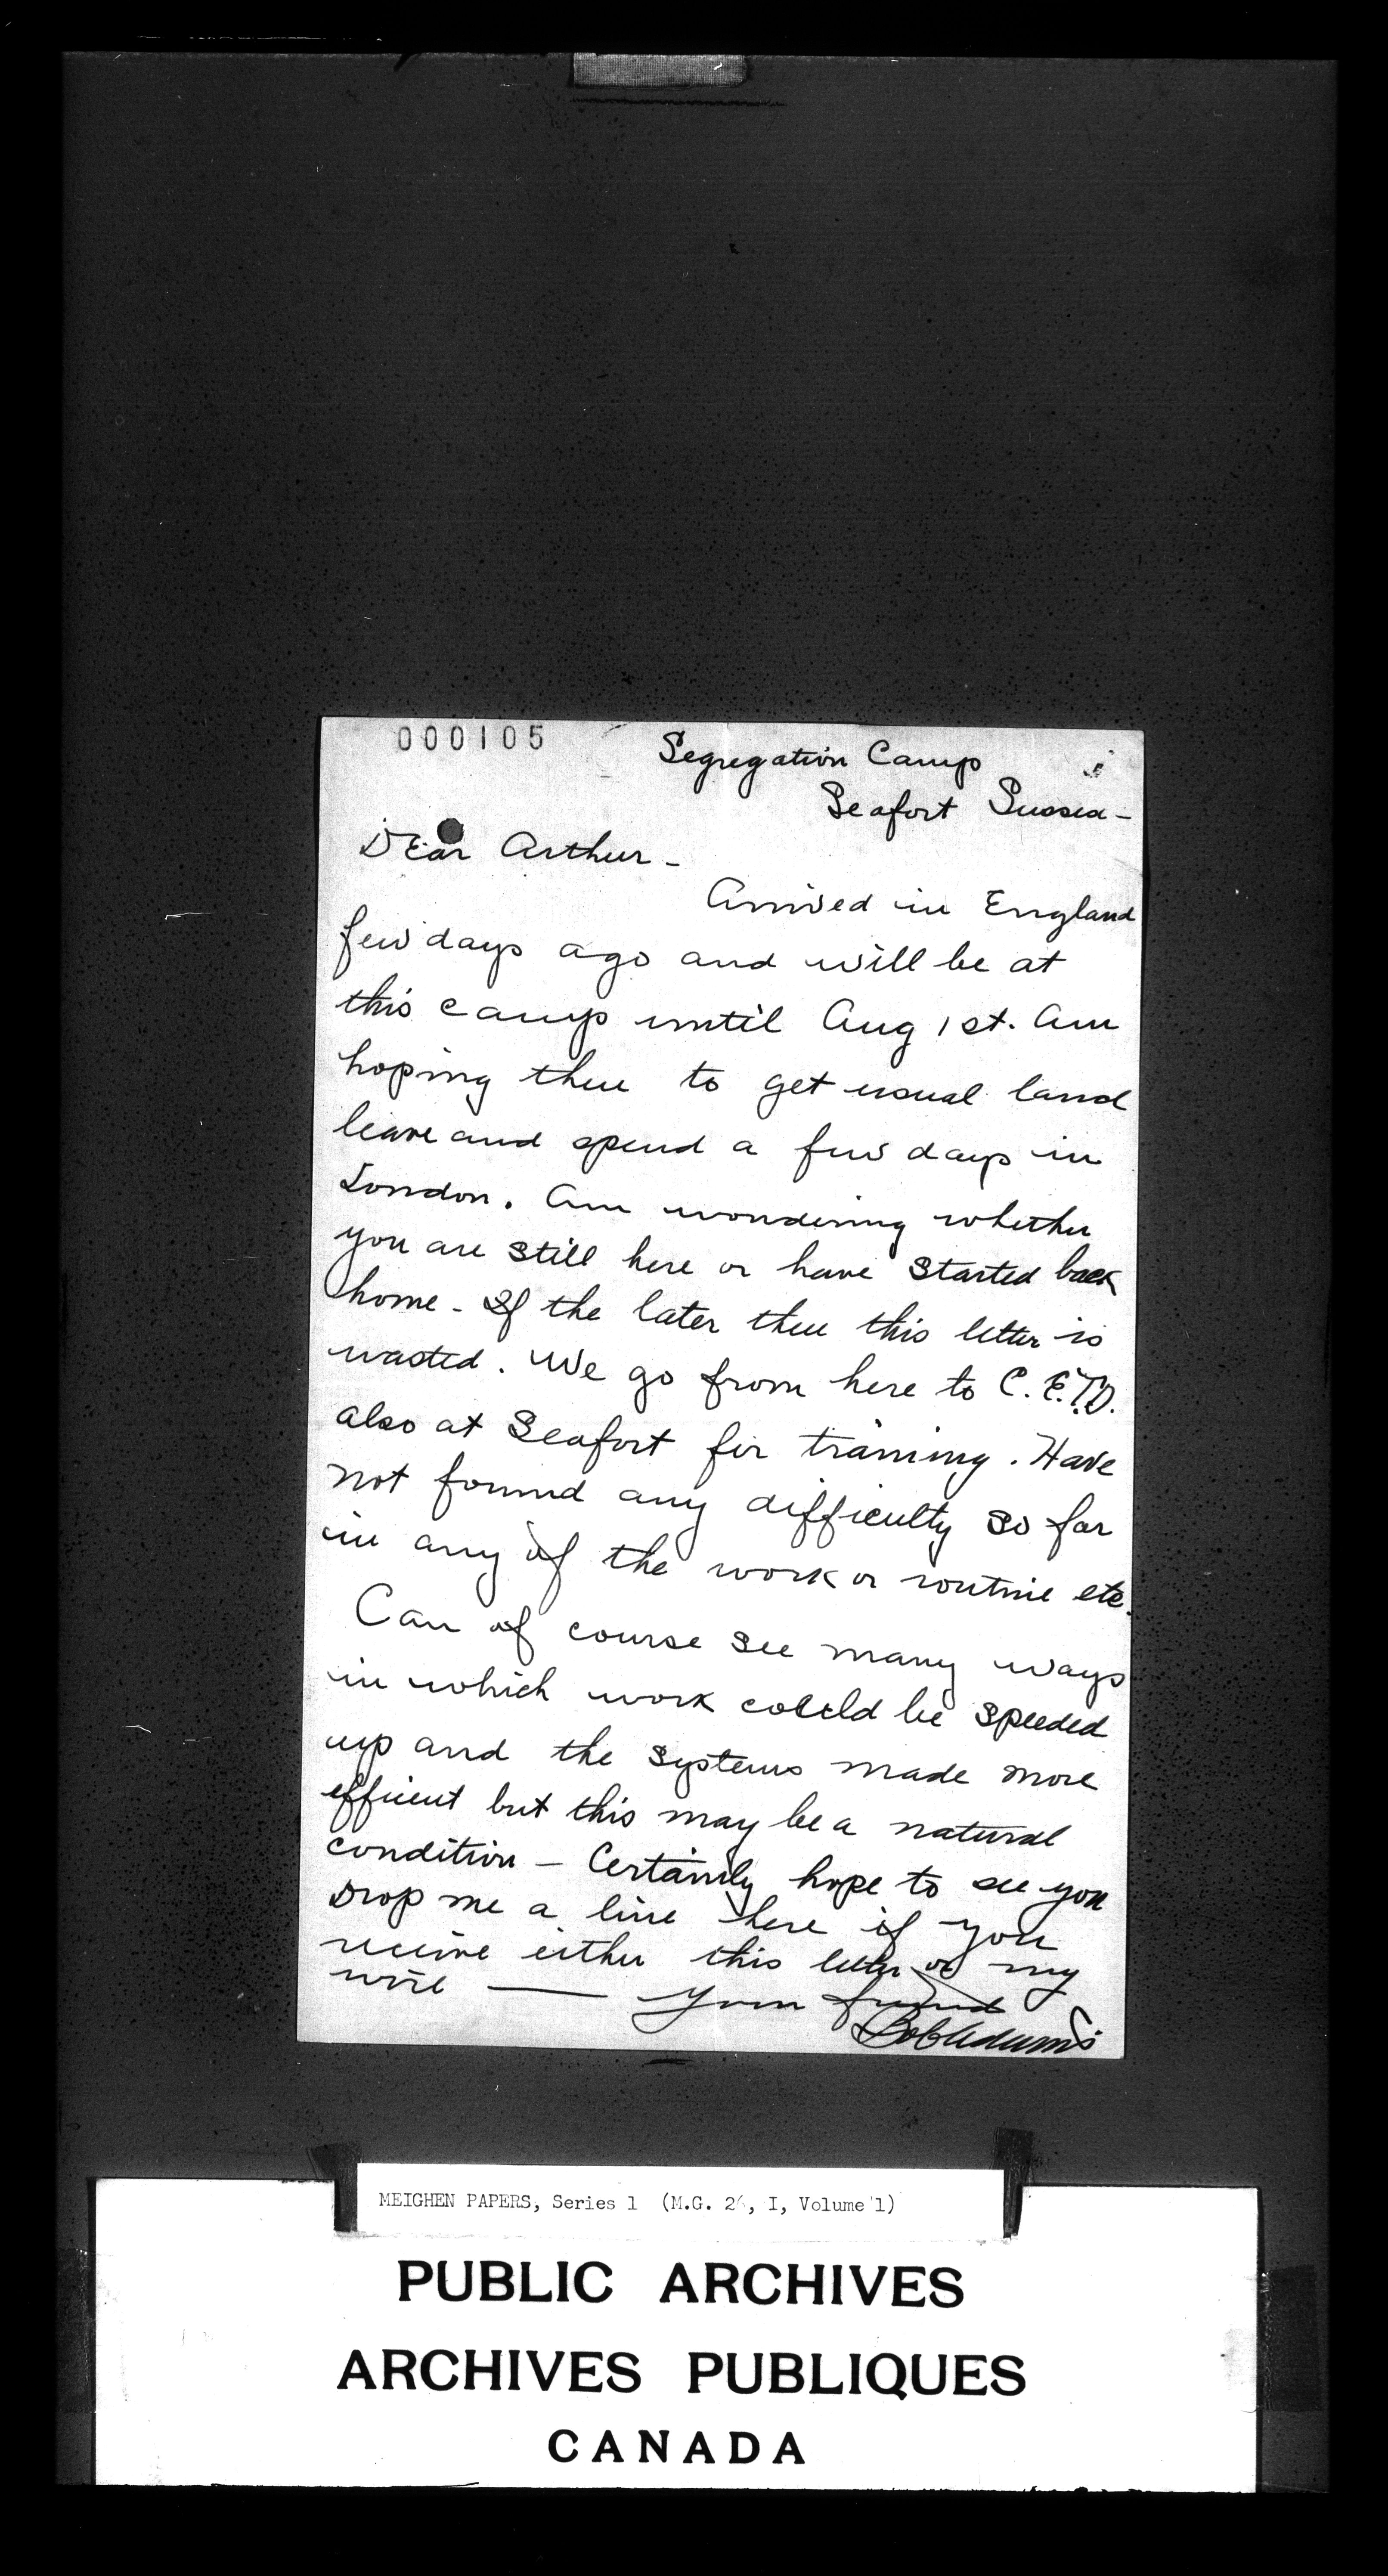 000105
Segregation Camp
Seafort Sussex -
Dear Arthur -
Arrived in England
few days ago and will be at
this camp until Aug 1st. Am
hoping then to get usual land
leave and spend a few days in
London. Am wondering whether
you are still here or have started back
home - If the later then this letter is
wasted. We go from here to C.E.T.D.
also at Seafort for training. Have
not found any difficulty so far
in any of the work or routine etc.
Can of course see many ways
in which work could be speeded
up and the systems made more
efficent but this may be a natural
condition - Certainly hope to see you
Drop me a line here if you
receive either this letter or my
wire — Your friend
Bob Adams
MEIGHEN PAPERS, Series 1 (M.G. 26, I, Volume 1)
PUBLIC ARCHIVES
ARCHIVES PUBLIQUES
CANADA